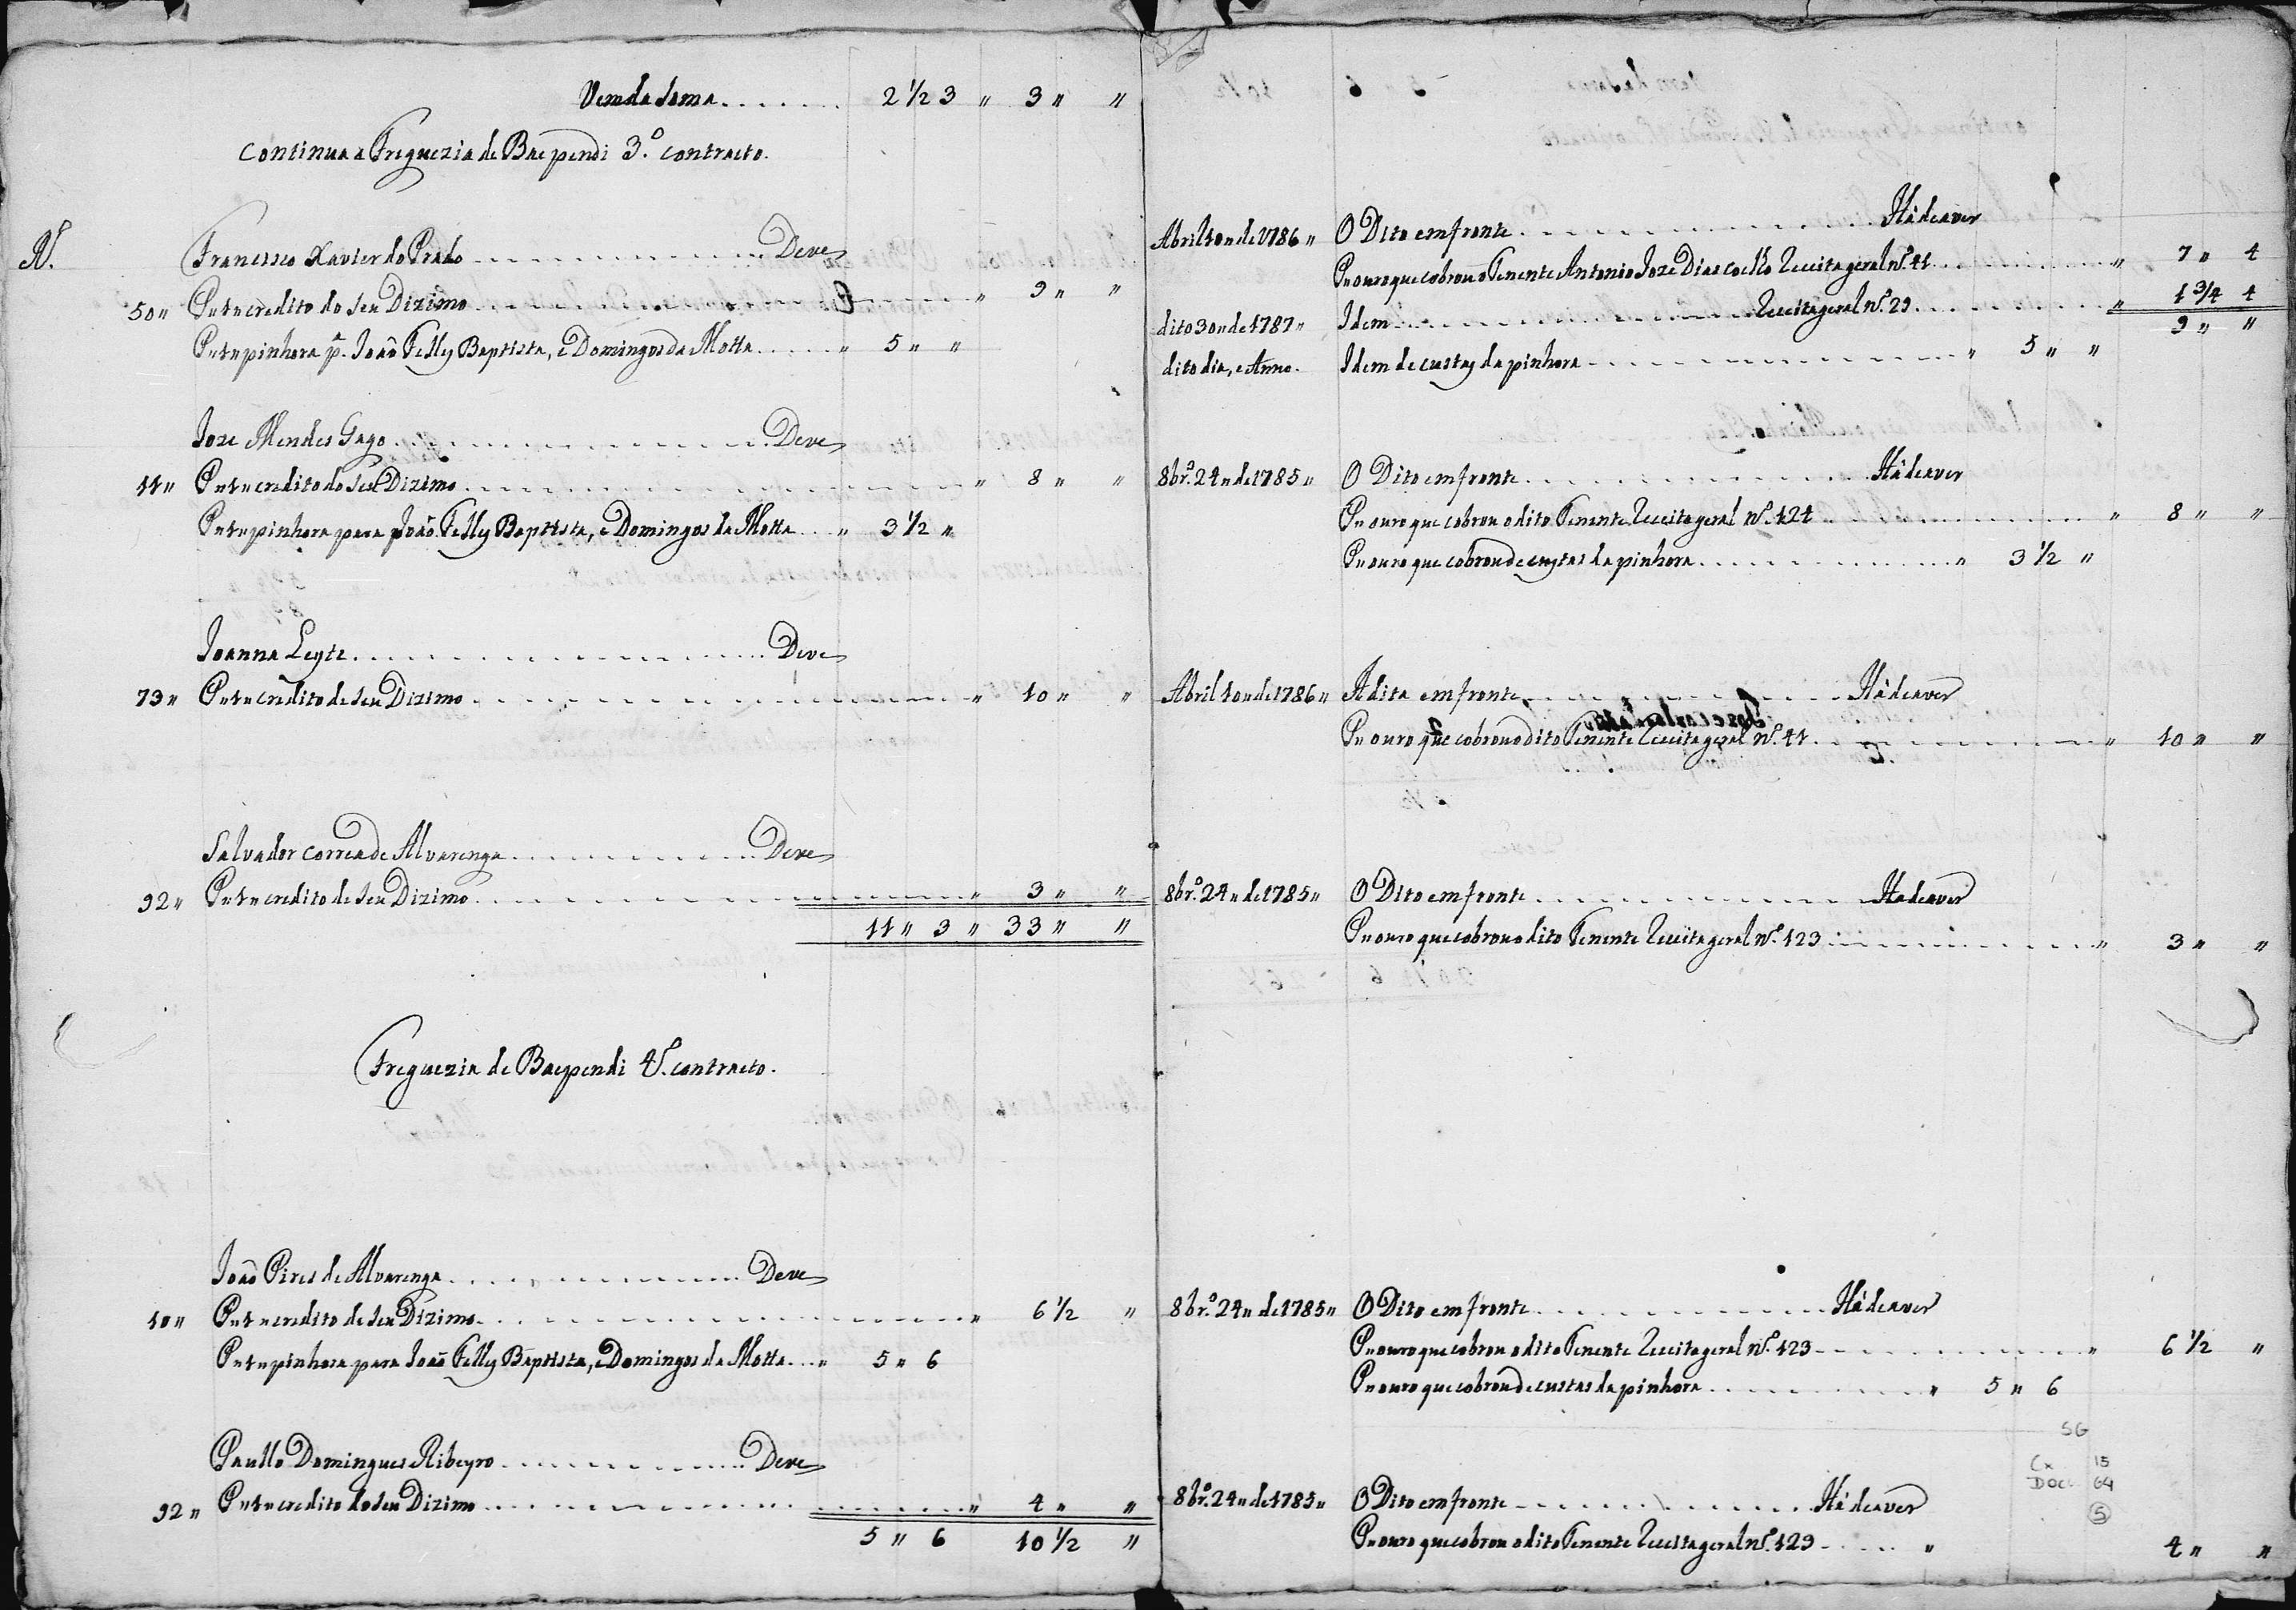 Vem da Soma....... 2 1/2 3 " 3 " "
Continua a Freguezia de Baependi 3.º contracto.
N.
Francisco Xavier do Prado............Deve
50" P." 1 " credito do seu Dizimo............ " 9 " "
P." 1 " pinhora p.ª Joaõ Felly Baptista, e Domingos da Motta..... " 5 " "
Joze Mendes Gago............Deve
11" P." 1 " credito do seu Dizimo............ " 8 " "
P." 1 " pinhora para Joaõ Felly Baptista, e Domingos da Motta... " 3 1/2 "
Joanna Leyte............Deve
73" P." 1 " credito de seu Dizimo............ " 10 " "
Salvador Correa de Alvarenga............Deve
92" P." 1 " credito de seu Dizimo............ " 3 " "
11 " 3 " 33 " "
Freguezia de Baependi 4.º contracto.
Joaõ Pires de Alvarenga............Deve
10" P." 1 " credito de seu Dizimo............ " 6 1/2 "
P." 1 " pinhora para Joaõ Felly Baptista, e Domingos da Motta... " 5 " 6
Paullo Domingues Ribeyro............Deve
92" P." 1 " credito do seu Dizimo............ " 4 " "
5 " 6 10 1/2 "
Abril 10 " de 1786 " O Dito em fronte............Há de aver
P." ouro que cobrou o Tenente Antonio Joze Dias Coelho Receita geral N.º 41............ " 7 " 4
dito 30 " de 1787 " Idem............Receita geral N.º 29............ " 1 3/4 4
9 " "
dito dia, e Anno. Idem de custas da pinhora............ " 5 " "
8br.º 24 " de 1785 " O Dito em fronte............Há de aver
P." ouro que cobrou o dito Tenente Receita geral N.º 121............ " 8 " "
P." ouro que cobrou de custas da pinhora............ " 3 1/2 "
Abril 10 " de 1786 " A dita em fronte............Há de aver
P." ouro que cobrou o dito Tenente Receita geral N.º 41............ " 10 " "
8br.º 24 " de 1785 " O Dito em fronte............Ha de aver
P." ouro que cobrou o dito Tenente Receita geral N.º 123............ " 3 " "
8br.º 24 " de 1785 " O Dito em fronte............Há de aver
P." ouro que cobrou o dito Tenente Receita geral N.º 123............ " 6 1/2 "
P." ouro que cobrou de custas da pinhora............ " 5 " 6
SG
Cx 15
DOC. 64
5
8br.º 24 " de 1785 " O Dito em fronte............Há de aver
P." ouro que cobrou o dito Tenente Receita geral N.º 123...... " 4 " "